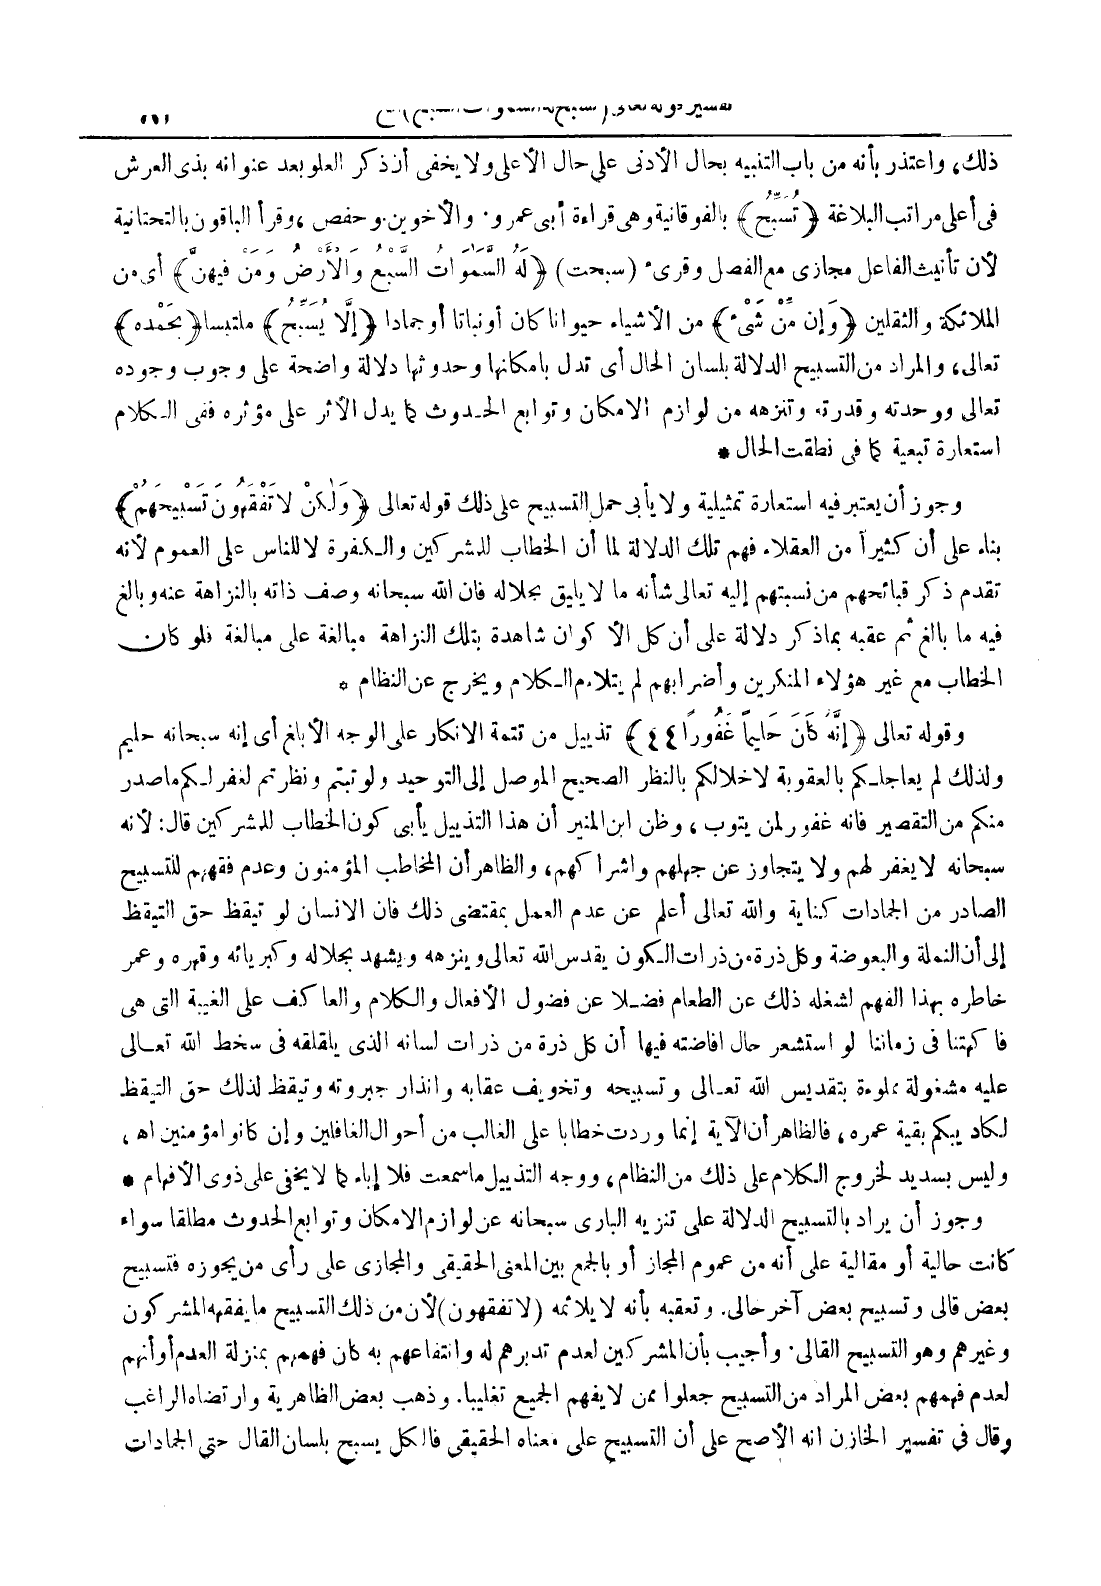 ذلك، واعتذر بأنه من باب التنبيه بحال الأدنى على حال الأعلى ولا يخفى أن ذكر العلو بعد عنوانه بذى العرش
فى أعلى مراتب البلاغة ﴿تُسَبِّحُ﴾ بالفوقانية وهى قراءة أبى عمرو. والأخوين. وحفص، وقرأ الباقون بالتحتانية
لأن تأنيث الفاعل مجازى مع الفصل وقرىء (سبحت) ﴿لَهُ السَّمَوَاتُ السَّبْعُ وَالْأَرْضُ وَمَنْ فيهنَّ﴾ أى من
الملائكة والثقلين ﴿وَإِن مِّنْ شَىْء﴾ من الأشياء حيوانا كان أو نباتا أو جمادا ﴿إِلَّا يُسَبِّحُ﴾ ملتبسا ﴿بحَمْده﴾
تعالى، والمراد من التسبيح الدلالة بلسان الحال أى تدل بامكانها وحدوثها دلالة واضحة على وجوب وجوده
تعالى ووحدته وقدرته وتنزهه من لوازم الامكان وتوابع الحدوث كما يدل الأثر على مؤثره ففى الكلام
استعارة تبعية كما فى نطقت الحال *
وجوز أن يعتبر فيه استعارة تمثيلية ولا يأبى حمل التسبيح على ذلك قوله تعالى ﴿وَلَكنْ لَا تَفْقَهُونَ تَسْبيحَهُمْ﴾
بناء على أن كثيراً من العقلاء فهم تلك الدلالة لما أن الخطاب للمشركين والكفرة لا للناس على العموم لأنه
تقدم ذكر قبائحهم من نسبتهم إليه تعالى شأنه ما لا يليق بجلاله فان الله سبحانه وصف ذاته بالنزاهة عنه وبالغ
فيه ما بالغ ثم عقبه بما ذكر دلالة على أن كل الأكوان شاهدة بتلك النزاهة مبالغة على مبالغة فلو كان
الخطاب مع غير هؤلاء المنكرين وأضرابهم لم يتلاءم الكلام ويخرج عن النظام *
وقوله تعالى ﴿إِنَّهُ كَانَ حَليماً غَفُورًا ٤٤﴾ تذييل من تتمة الانكار على الوجه الأبلغ أى إنه سبحانه حليم
ولذلك لم يعاجلكم بالعقوبة لاخلالكم بالنظر الصحيح الموصل إلى التوحيد ولو تبتم ونظرتم لغفر لكم ما صدر
منكم من التقصير فانه غفور لمن يتوب، وظن ابن المنير أن هذا التذييل يأبى كون الخطاب للمشركين قال: لأنه
سبحانه لا يغفر لهم ولا يتجاوز عن جهلهم واشراكهم، والظاهر أن المخاطب المؤمنون وعدم فقههم للتسبيح
الصادر من الجمادات كناية والله تعالى أعلم عن عدم العمل بمقتضى ذلك فان الانسان لو تيقظ حق التيقظ
إلى أن النملة والبعوضة وكل ذرة من ذرات الكون يقدس الله تعالى وينزهه ويشهد بجلاله وكبريائه وقهره وعمر
خاطره بهذا الفهم لشغله ذلك عن الطعام فضلا عن فضول الأفعال والكلام والعاكف على الغيبة التى هى
فاكهتنا فى زماننا لو استشعر حال افاضته فيها أن كل ذرة من ذرات لسانه الذى يلقلقه فى سخط الله تعالى
عليه مشغولة مملوءة بتقديس الله تعالى وتسبيحه وتخويف عقابه وانذار جبروته وتيقظ لذلك حق التيقظ
لكاد يبكم بقية عمره، فالظاهر أن الآية إنما وردت خطابا على الغالب من أحوال الغافلين وإن كانوا مؤمنين اه،
وليس بسديد لخروج الكلام على ذلك من النظام، ووجه التذييل ما سمعت فلا إباء كما لا يخفى على ذوى الأفهام *
وجوز أن يراد بالتسبيح الدلالة على تنزيه البارى سبحانه عن لوازم الامكان وتوابع الحدوث مطلقا سواء
كانت حالية أو مقالية على أنه من عموم المجاز أو بالجمع بين المعنى الحقيقى والمجازى على رأى من يجوزه فتسبيح
بعض قالى وتسبيح بعض آخر حالى. وتعقبه بأنه لا يلائمه (لا تفقهون) لأن من ذلك التسبيح ما يفقهه المشركون
وغيرهم وهو التسبيح القالى. وأجيب بأن المشركين لعدم تدبرهم له وانتفاعهم به كان فهمهم بمنزلة العدم أو أنهم
لعدم فهمهم بعض المراد من التسبيح جعلوا ممن لا يفهم الجميع تغليبا. وذهب بعض الظاهرية وارتضاه الراغب
وقال فى تفسير الخازن انه الأصح على أن التسبيح على معناه الحقيقى فالكل يسبح بلسان القال حتى الجمادات